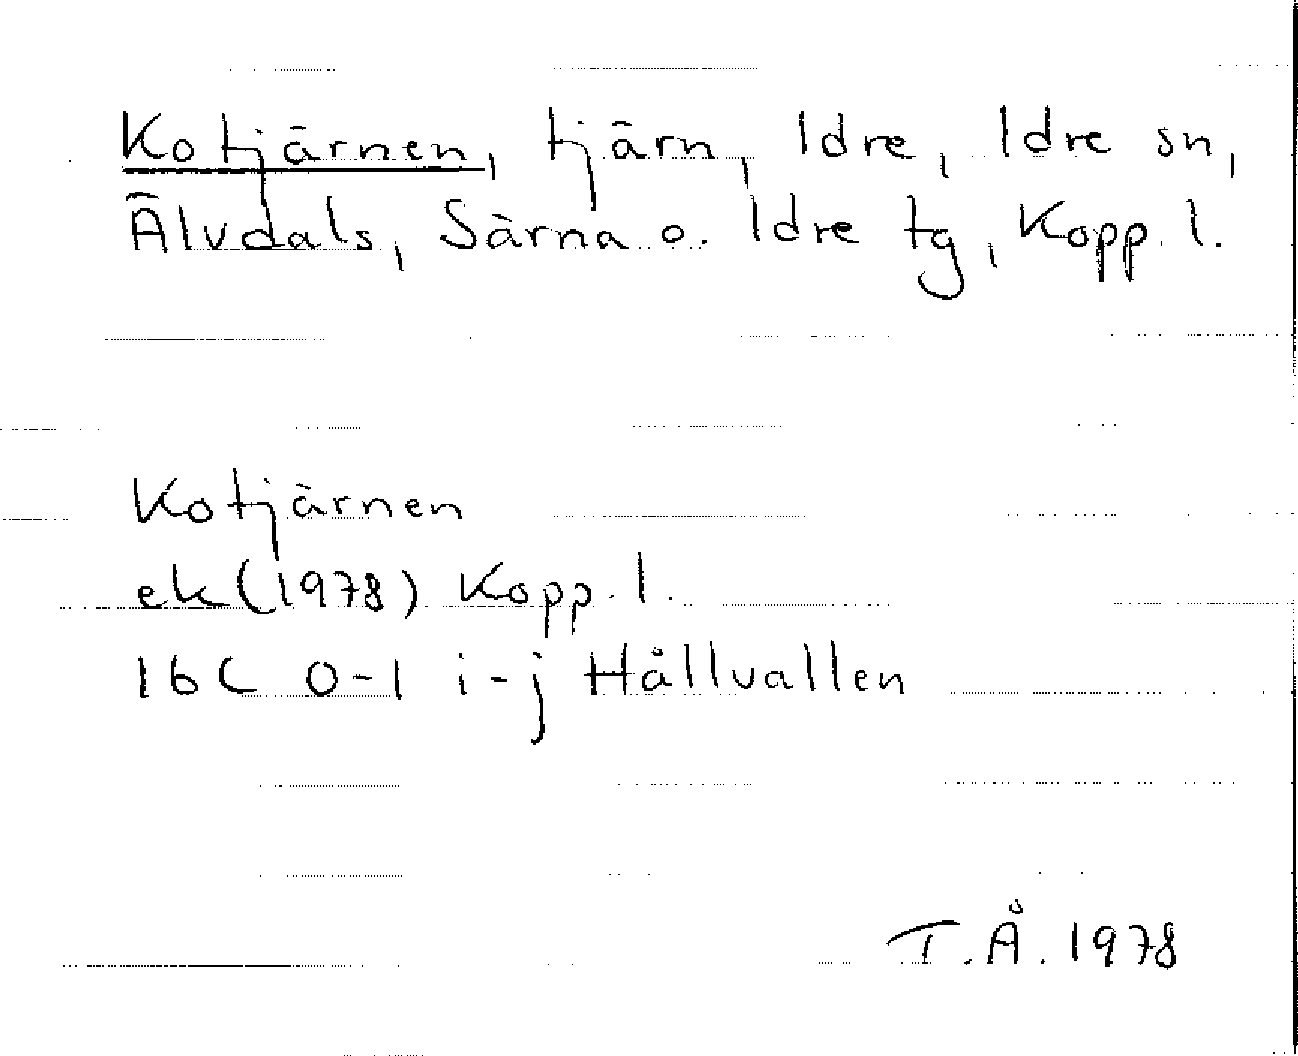 Kotjärnen, tjärn, Idre, Idre sn,
Älvdals, Särna o. Idre tg, Kopp. l.
Kotjärnen
ek (1978) Kopp. l.
16C 0-1 i-j Hållvallen
T.Å. 1978